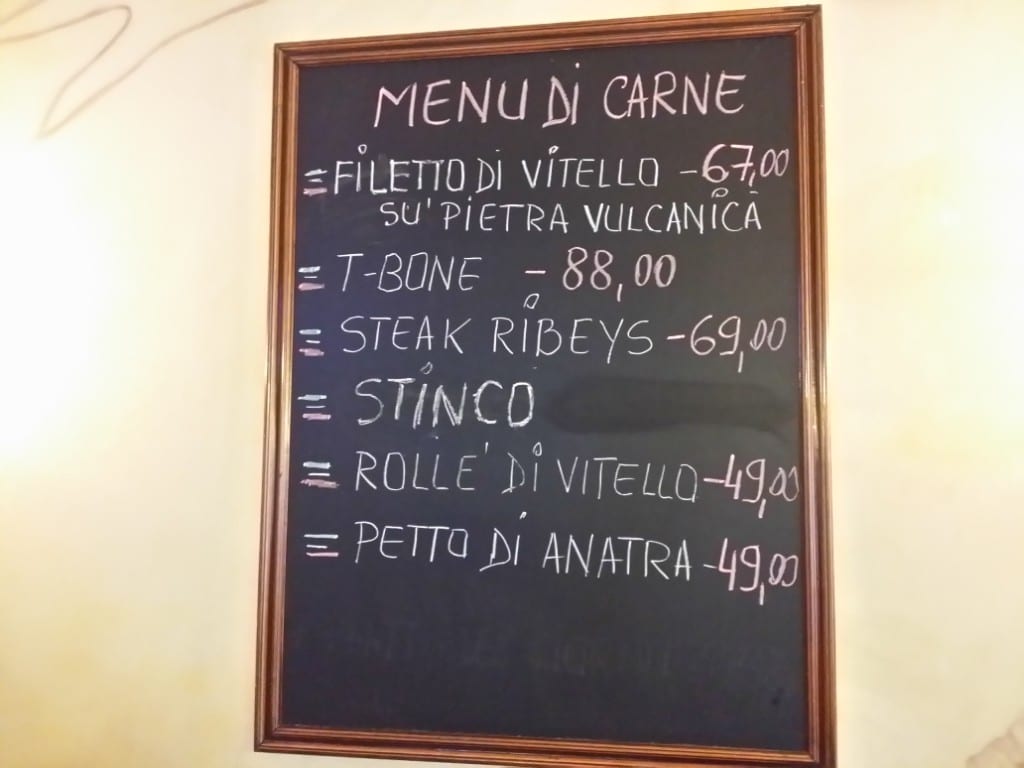 MENU Di CARNE
= FiLETTO Di ViTELLO - 67,00
SU' PIETRA VULCANiCA
= T-BONE - 88,00
= STEAK RiBEYS - 69,00
= STiNCO
= ROLLE' Di VITELLO - 49,00
= PETTO Di ANATRA - 49,00